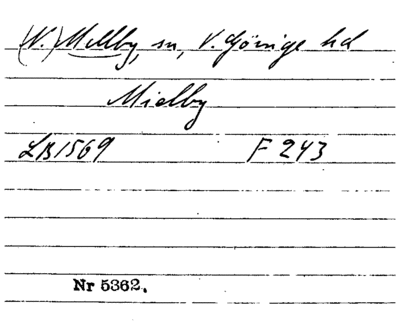 (N.) Mellby, sn, V. Göinge hd
Mielby
LB1569 F 243
Nr 5362.